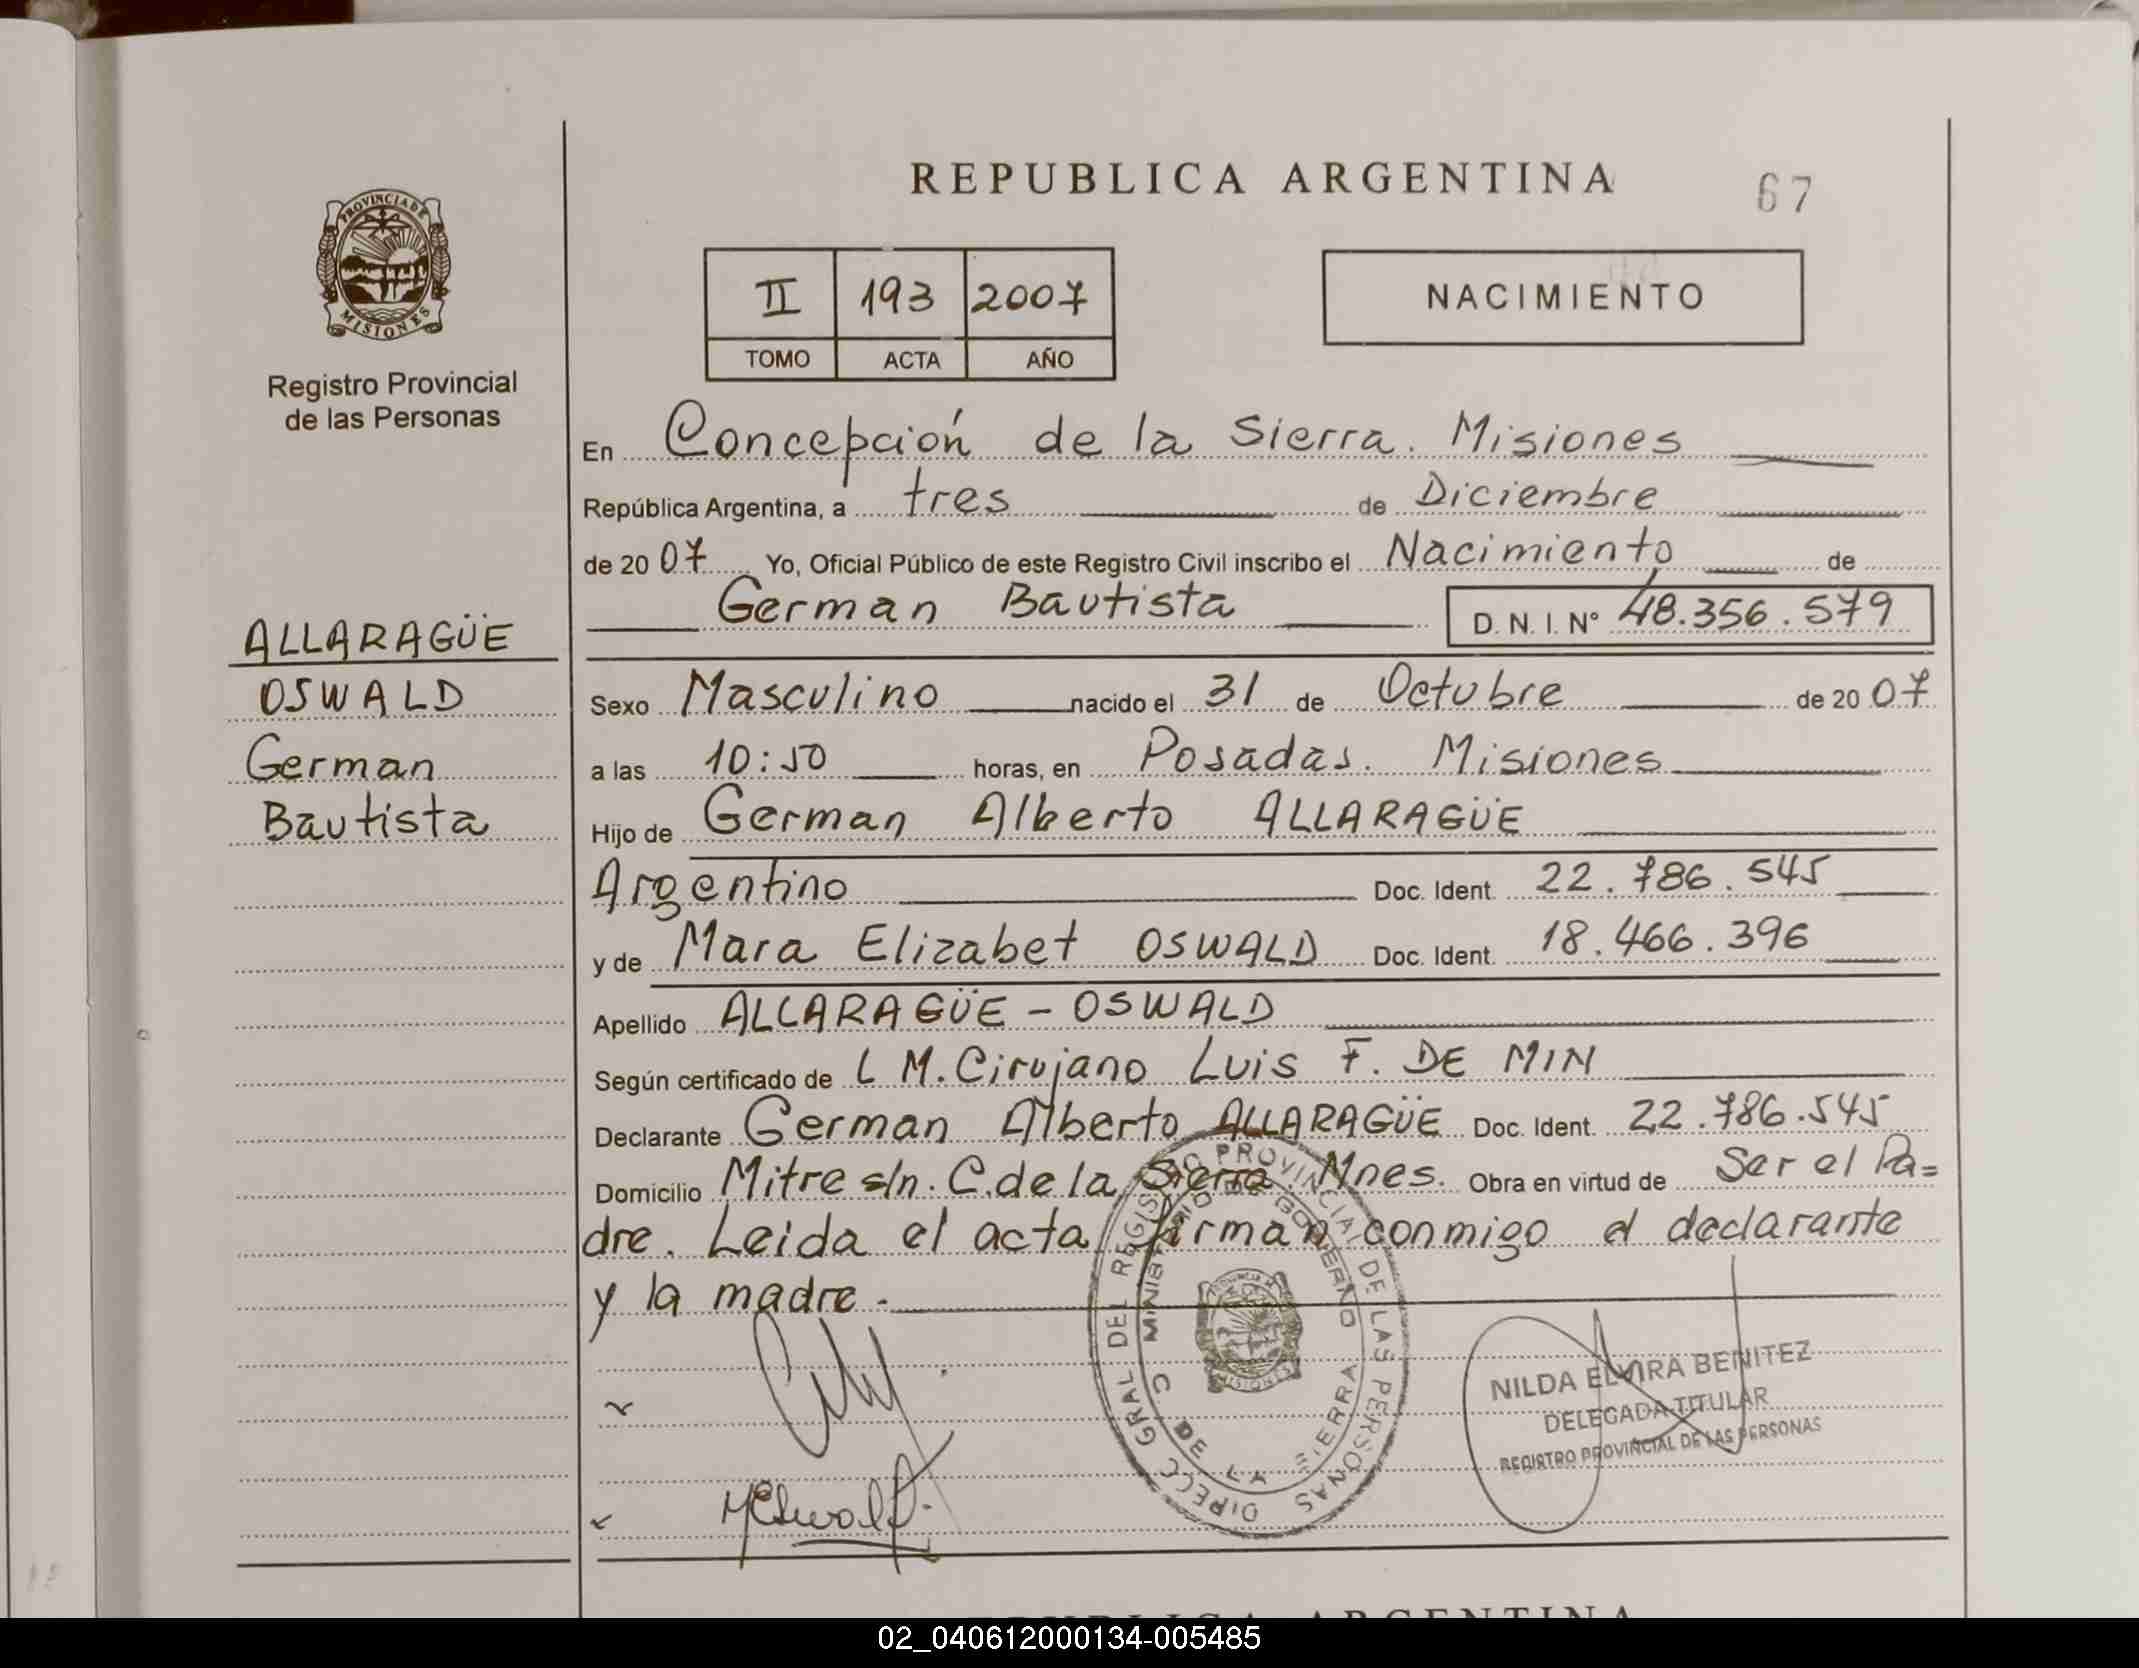 REPUBLICA ARGENTINA
67
PROVINCIA DE
MISIONES
Registro Provincial
de las Personas
II 193 2007
TOMO ACTA AÑO
NACIMIENTO
En Concepción de la Sierra. Misiones
República Argentina, a tres de Diciembre
de 20 07 Yo, Oficial Público de este Registro Civil inscribo el Nacimiento de
German Bautista D. N. I. N° 48.356.579
ALLARAGÜE
OSWALD
German
Bautista
Sexo Masculino nacido el 31 de Octubre de 20 07
a las 10:50 horas, en Posadas. Misiones
Hijo de German Alberto ALLARAGÜE
Argentino Doc. Ident. 22.786.545
y de Mara Elizabet OSWALD Doc. Ident. 18.466.396
Apellido ALLARAGÜE - OSWALD
Según certificado de L M. Cirujano Luis F. DE MIN
Declarante German Alberto ALLARAGÜE Doc. Ident. 22.786.545
Domicilio Mitre s/n. C. de la Sierra. Mnes. Obra en virtud de Ser el Pa=
dre. Leida el acta firman conmigo el declarante
y la madre.-
DIRECC GRAL DEL REGISTRO PROVINCIAL DE LAS PERSONAS
MINISTERIO DE GOBIERNO
C DE LA SIERRA
MISIONES
NILDA ELVIRA BENITEZ
DELEGADA TITULAR
REGISTRO PROVINCIAL DE LAS PERSONAS
MEOswald.
REPUBLICA ARGENTINA
02_040612000134-005485